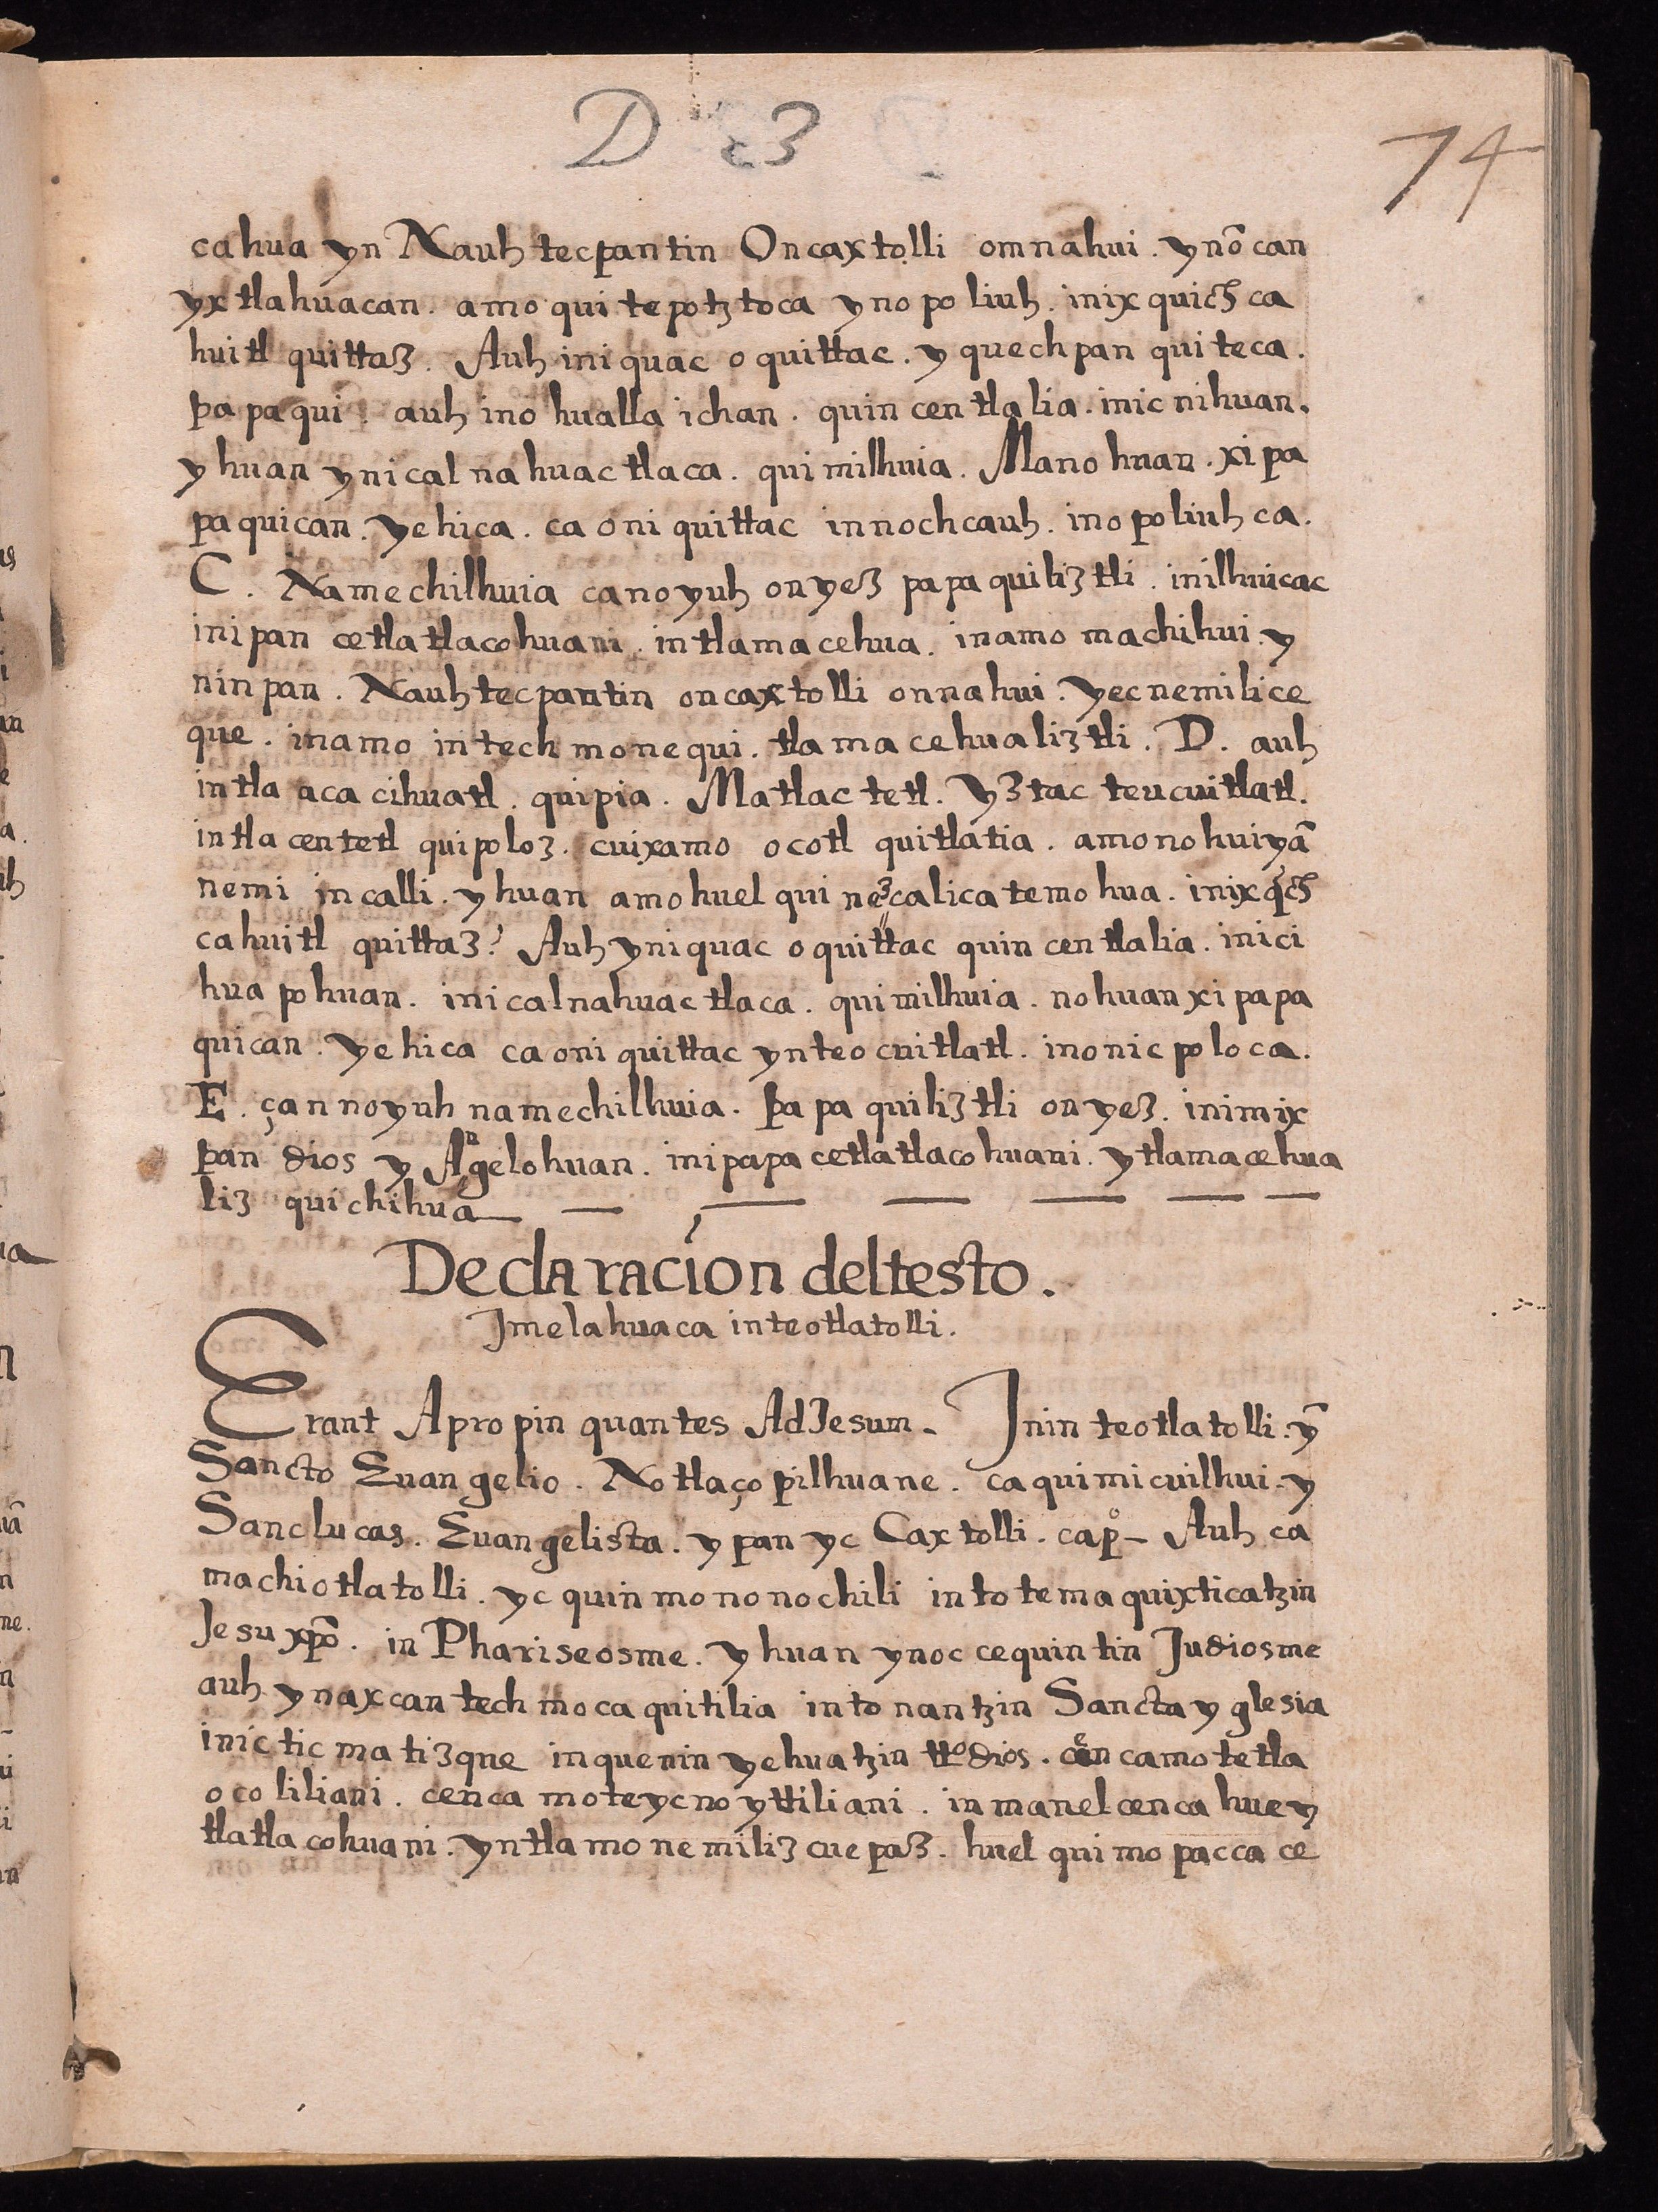 D 23
74
cahua yn Nauhtecpantin Oncaxtolli omnahui. ynōcan
yxtlahuacan. amo quitepotztoca yno poliuh. inixquich ca
huitl quittaz. Auh iniquac oquittac. y quechpan quiteca.
papaqui. auh ino hualla ichan. quincentlalia. inicnihuan.
yhuan ynicalnahuactlaca. quimilhuia. Manohuan. xipa
paquican. yehica. ca oniquittac innochcauh. inopoliuhca.
C. Namechilhuia canoyuh onyez papaquiliztli. inilhuicac
inipan cetlatlacohuani. intlamacehua. inamo machihui. y
ninpan. Nauhtecpantin oncaxtolli onnahui. yecnemilice
que. inamo intech monequi. tlamacehualiztli. D. auh
intla aca cihuatl. quipia. Matlactetl. Yztac teucuitlatl.
intla centetl quipoloz. cuixamo ocotl quitlatia. amonohuiyā
nemi incalli. yhuan amohuel quinezcalicatemohua. inixq̄ch
cahuitl quittaz? Auh yniquac oquittac quincentlalia. inici
huapohuan. inicalnahuactlaca. quimilhuia. nohuan xipapa
quican. yehica ca oniquittac ynteocuitlatl. inonicpoloca.
E. çannoyuh namechilhuia. papaquiliztli onyez. inimix
pan dios y Angelohuan. inipapa cetlatlacohuani. ytlamacehua
liz quichihua
Declaracion deltesto.
Jmelahuaca inteotlatolli.
Erant Apropinquantes AdJesum. Jnin teotlatolli. yn̄
Sancto Euangelio. Notlaçopilhuane. ca quimicuilhui. y
Sanclucas. Euangelista. ypan yc Caxtolli. capº Auh ca
machiotlatolli. yc quinmononochili intotemaquixticatzin
Jesuxpō. in Phariseosme. yhuan ynoc cequintin Judiosme
auh ynaxcan techmocaquitilia intonantzin Sancta yglesia
inic ticmatizque inquenin yehuatzin ttº dios. cencamotetla
ocoliliani. cenca moteycnoyttiliani. inmanel cenca huey
tlatlacohuani. yntla monemilizcuepaz. huel quimopaccace